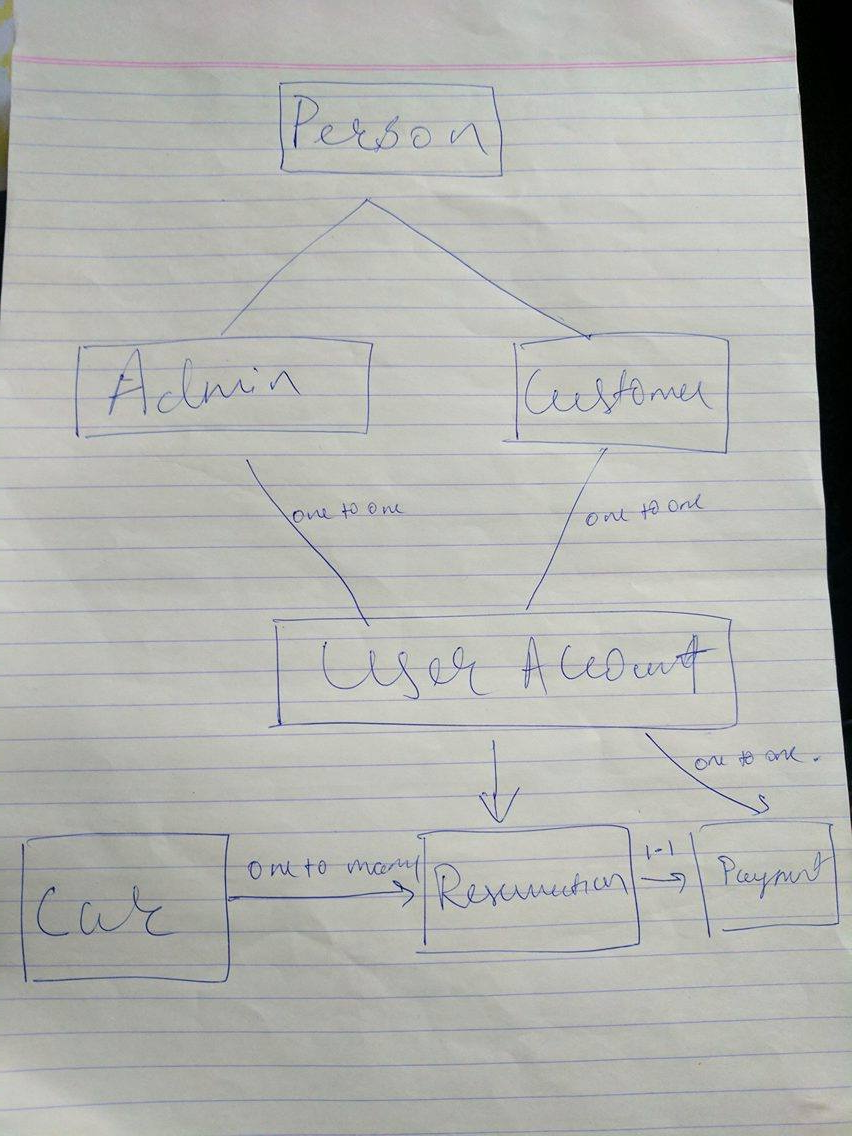 Person
Admin
Customer
one to one
one to one
User Account
one to one.
Car
one to many
Reservation
1-1
Payment